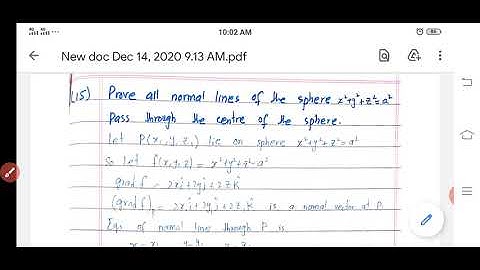 10:02 AM
New doc Dec 14, 2020 9.13 AM.pdf
(15) Prove all normal lines of the sphere x²+y²+z²=a²
Pass through the centre of the sphere.
Let P(x₁,y₁,z₁) lie on sphere x²+y²+z²=a²
So let f(x,y,z) = x²+y²+z²-a²
grad f = 2xi+2yj+2zk
(grad f)p = 2x₁i+2y₁j+2z₁k is a normal vector at P.
Eqn of normal line through P is